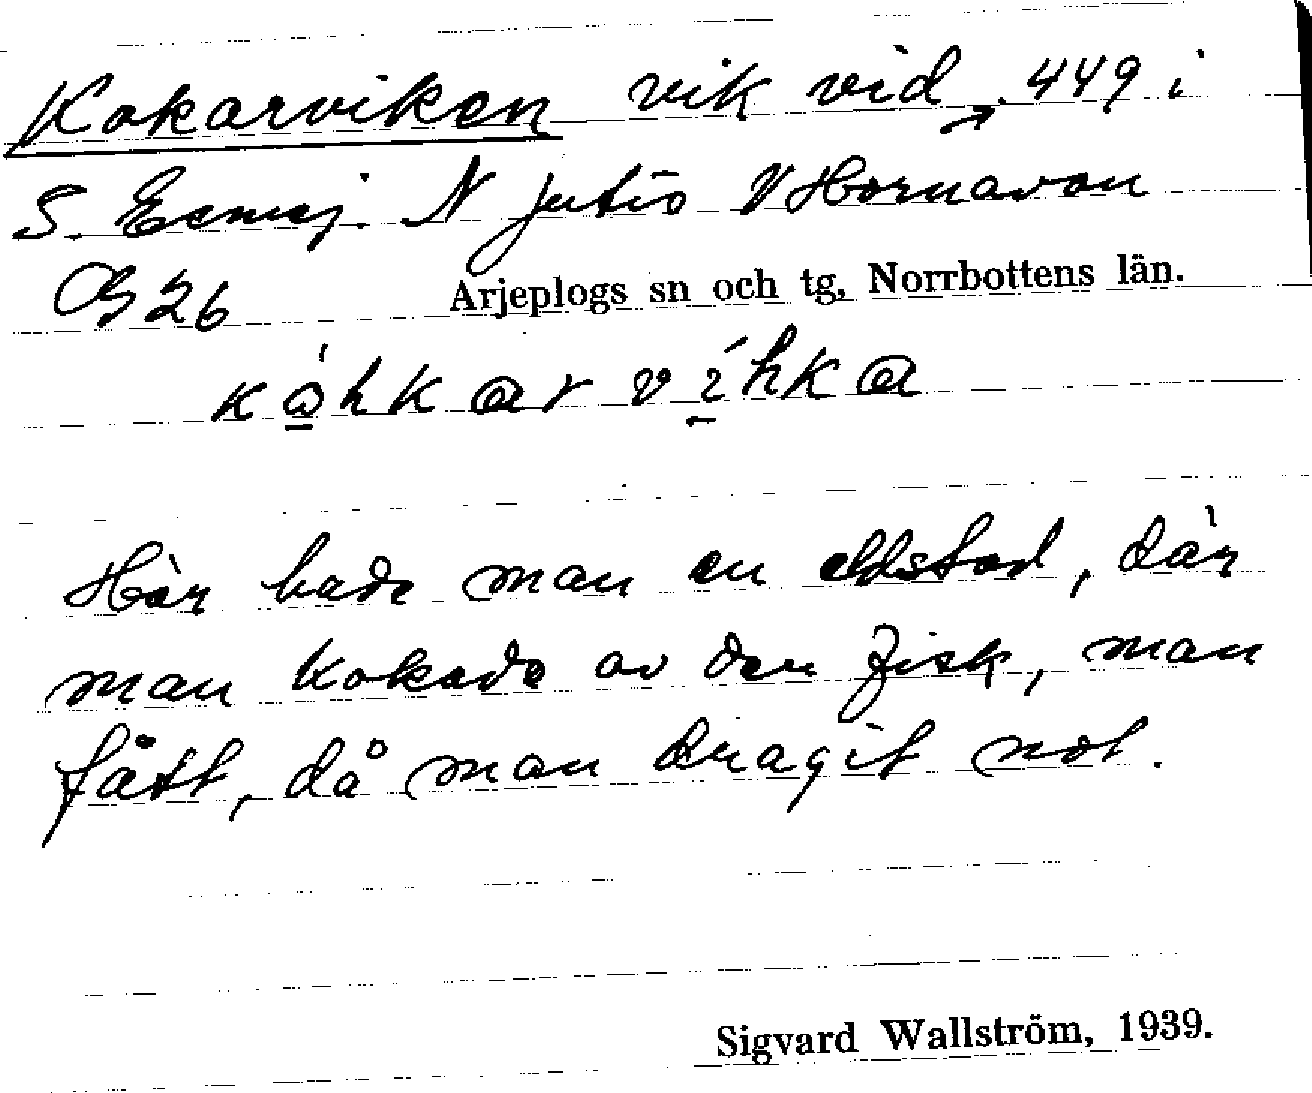 Kokarviken vik vid → 449 i
S. Ecmej. N Jutis V Hornavan
G 26 Arjeplogs sn och tg, Norrbottens län.
kåhkar víhka
Här hade man en eldstad, där
man kokade av den fisk, man
fått, då man dragit not.
Sigvard Wallström, 1939.